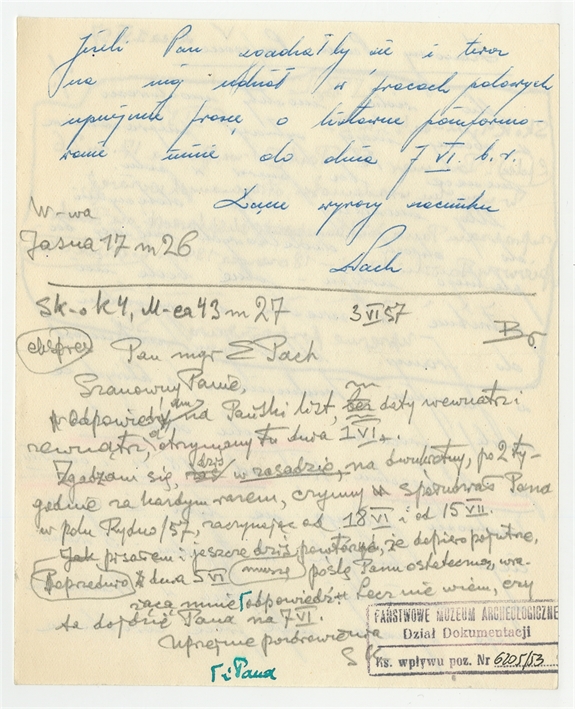 Jeżeli Pan zgadzałby się i teraz
na mój udział w pracach polowych
uprzejmie proszę o listowne poinformo-
wanie mnie do dnia 7 VI. b.r.
Łączę wyrazy szacunku
Pach
W-wa
Jasna 17 m 26
Sk-ok 4, M-ca 43 m 27 3 VI 57
Bo.
ekspres Pan mgr E Pach
Szanowny Panie,
odpowiedź na Pański list, bez daty wewnątrz i
zewnątrz, otrzymany tu dnia 1 VI.
Zgadzam się, dziś w zasadzie, na dwukrotny, po 2 ty-
godnie za każdym razem, czynny Pana
w polu Rydno/57, zaczynając od 18 VI i od 15 VII.
Jak pisałem i jeszcze dziś powtarzam, że dopiero pojutrze,
dnia 5 VI muszę posłę Panu ostateczną, wią-
żącą mnie i odpowiedź. Lecz nie wiem, czy
ta dojdzie Pana na 7 VI.
Uprzejme pozdrowienia
S K
i Pana
PAŃSTWOWE MUZEUM ARCHEOLOGICZNE
Dział Dokumentacji
Ks. wpływu poz. Nr 6205/53